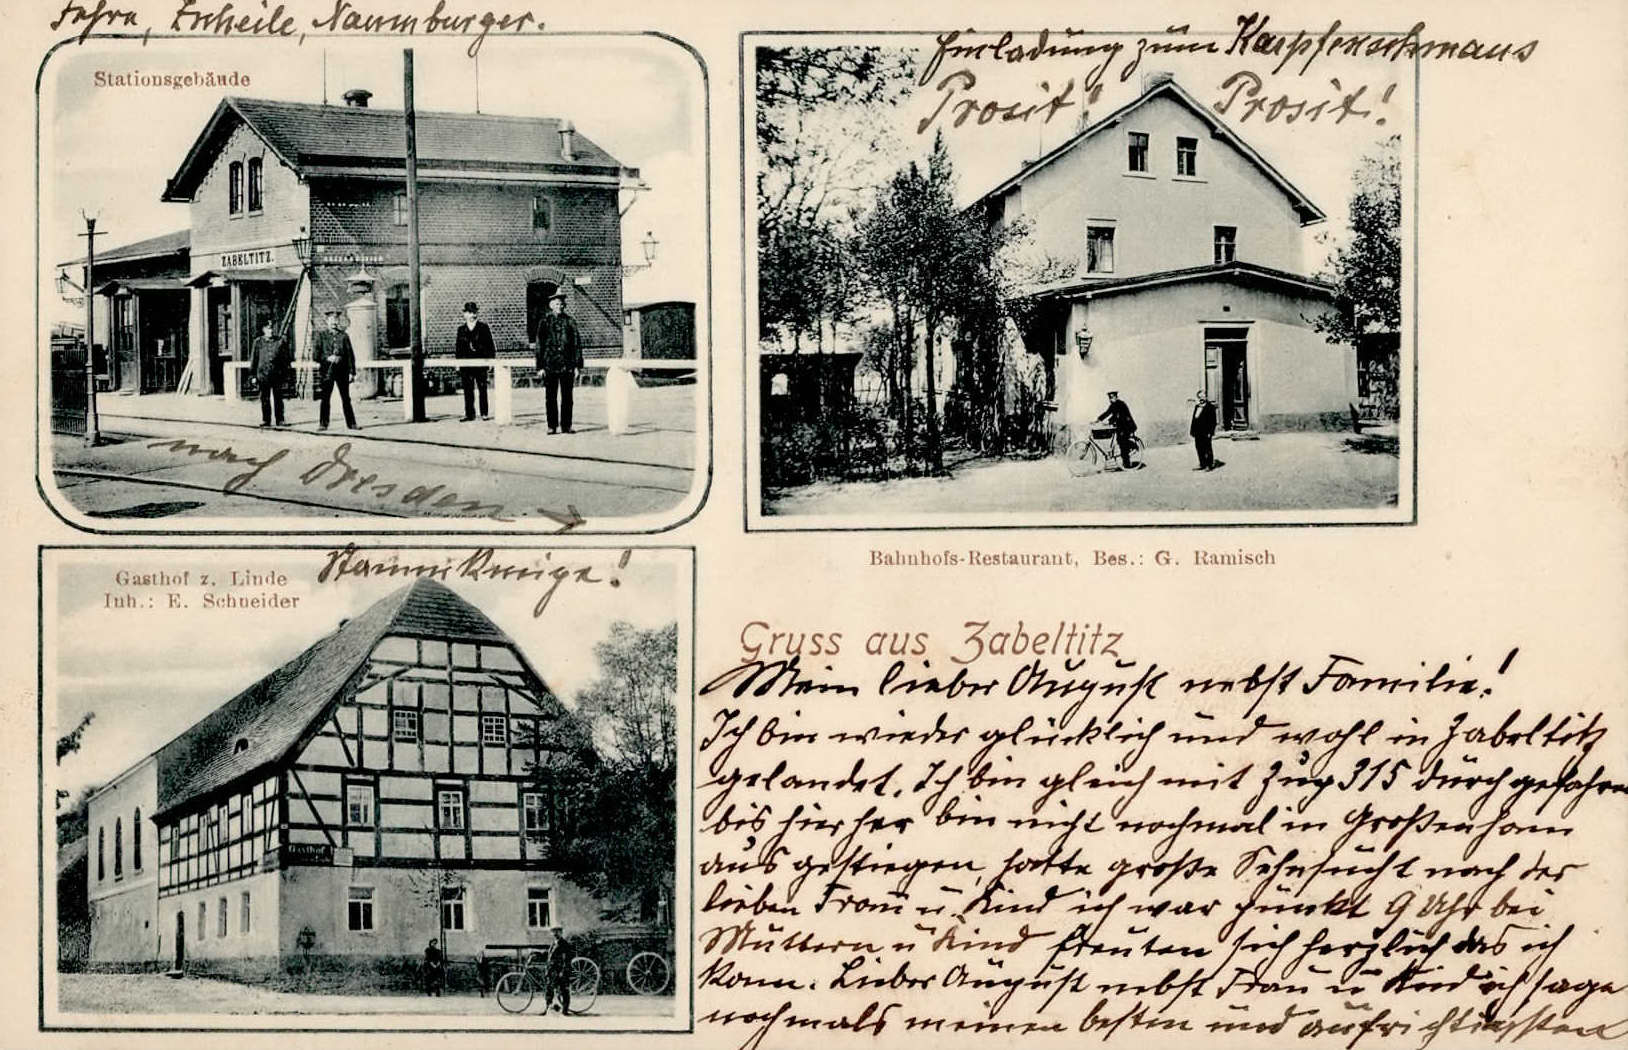 Fehre, Zscheile, Naumburger.
Stationsgebäude
ZABELTITZ.
nach Dresden →
Einladung zum Karpfenschmaus
Prosit! Prosit!
Bahnhofs-Restaurant, Bes.: G. Ramisch
Gasthof z. Linde
Inh.: E. Schneider
Stammkneipe!
Gasthof
Gruss aus Zabeltitz
Mein lieber August nebst Familie!
Ich bin wieder glücklich und wohl in Zabeltitz
gelandet. Ich bin gleich mit Zug 315 durchgefahren
bis hierher bin nicht nochmal in Großenhain
ausgestiegen, hatte große Sehnsucht nach der
lieben Frau u. Kind ich war punkt 9 Uhr bei
Muttern u Kind freuten sich herzlich das ich
kam. Lieber August nebst Frau u Kind ich sage
nochmals meinen besten und aufrichtigsten